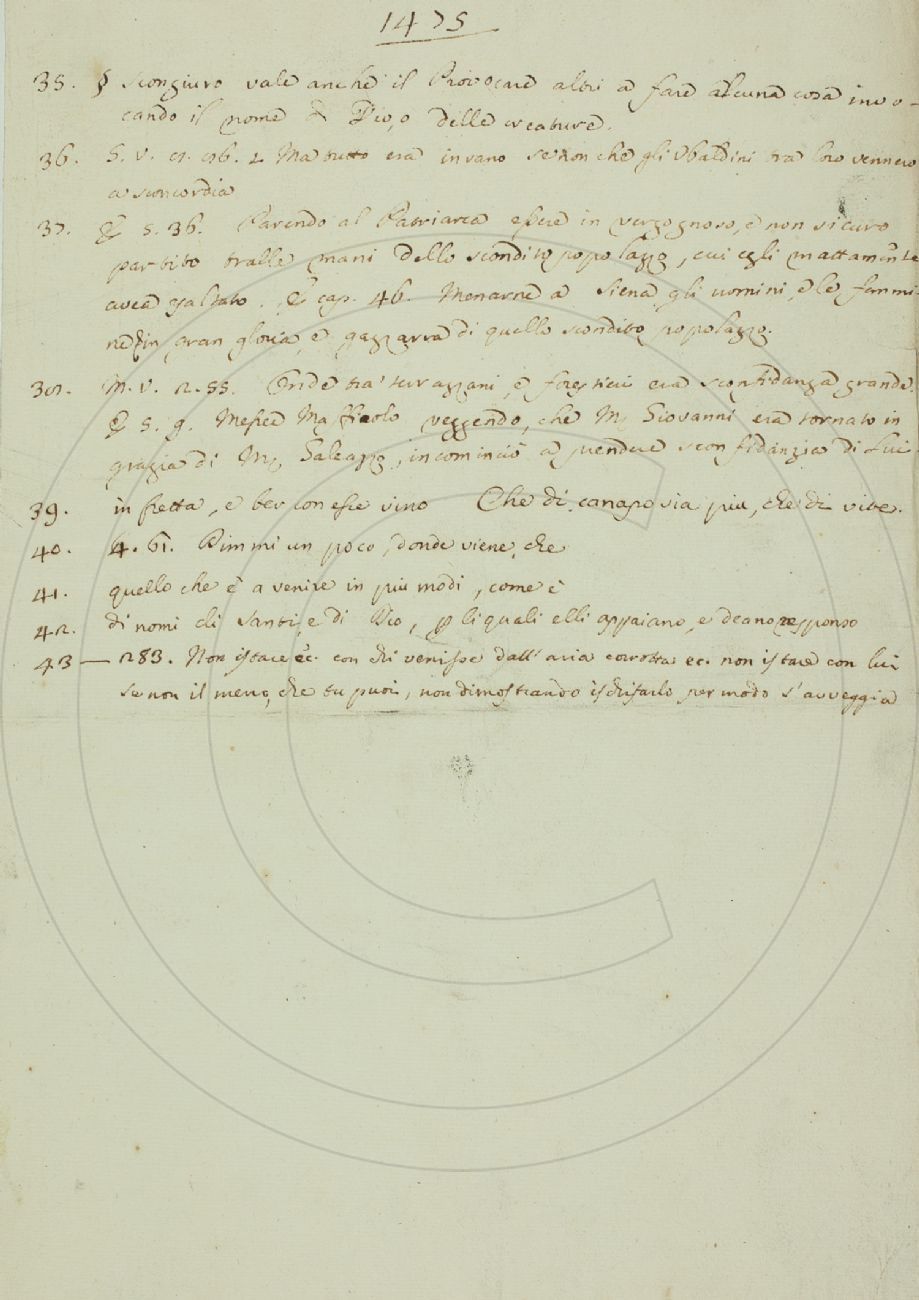 1475
35. § Scongiuro vale anche il Provocare altri a fare alcuna cosa invo-
cando il nome di Dio, o delle creature.
36. G. V. 9. 96. 2 Ma tutto era invano se non che gli Ubaldini tra loro vennero
a sconcordia
37. E 5. 36. Parendo al Patriarca essere in vergognoso, e non sicuro
partito tralle mani dello scondito popolazzo, cui egli mattamente
avea . E cap. 46. Menarne a Siena gli uomini, e le femmi-
ne in gran gloria, e gazzarra di quello scondito popolazzo.
38. M. V. 2. 55. Onde tra' terrazzani, e foresticri era sconfidanza grande.
E 5. 9. Messer Maffiolo veggendo, che M. Giovanni era tornato in
grazia di M. Galeazzo, incominciò a prendere sconfidanza di lui.
39. in fretta, e ber con esse vino Che di canapo via più, che di vite.
40. 4. 61. Dimmi un poco, donde viene, che
41. quello che è a venire in più modi, come è
42. di nomi di Santi, e di Dio, p li quali elli appaiano, e deano responso
43 — 283. Non istare ec. con chi venisse dall' aria corrotta ec. non istare con lui
se non il meno, che tu puoi, non dimostrando ischifarlo per modo s'avveggia